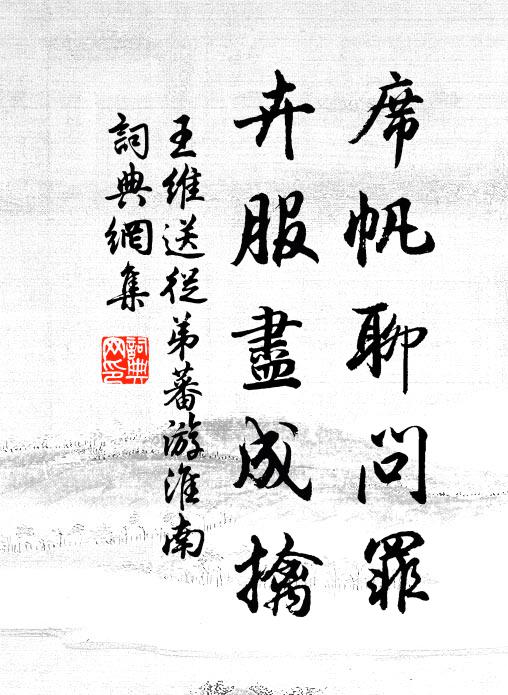 席帆聊問罪
卉服盡成擒
王維送從弟蕃游淮南
詞典網集
詞典网印